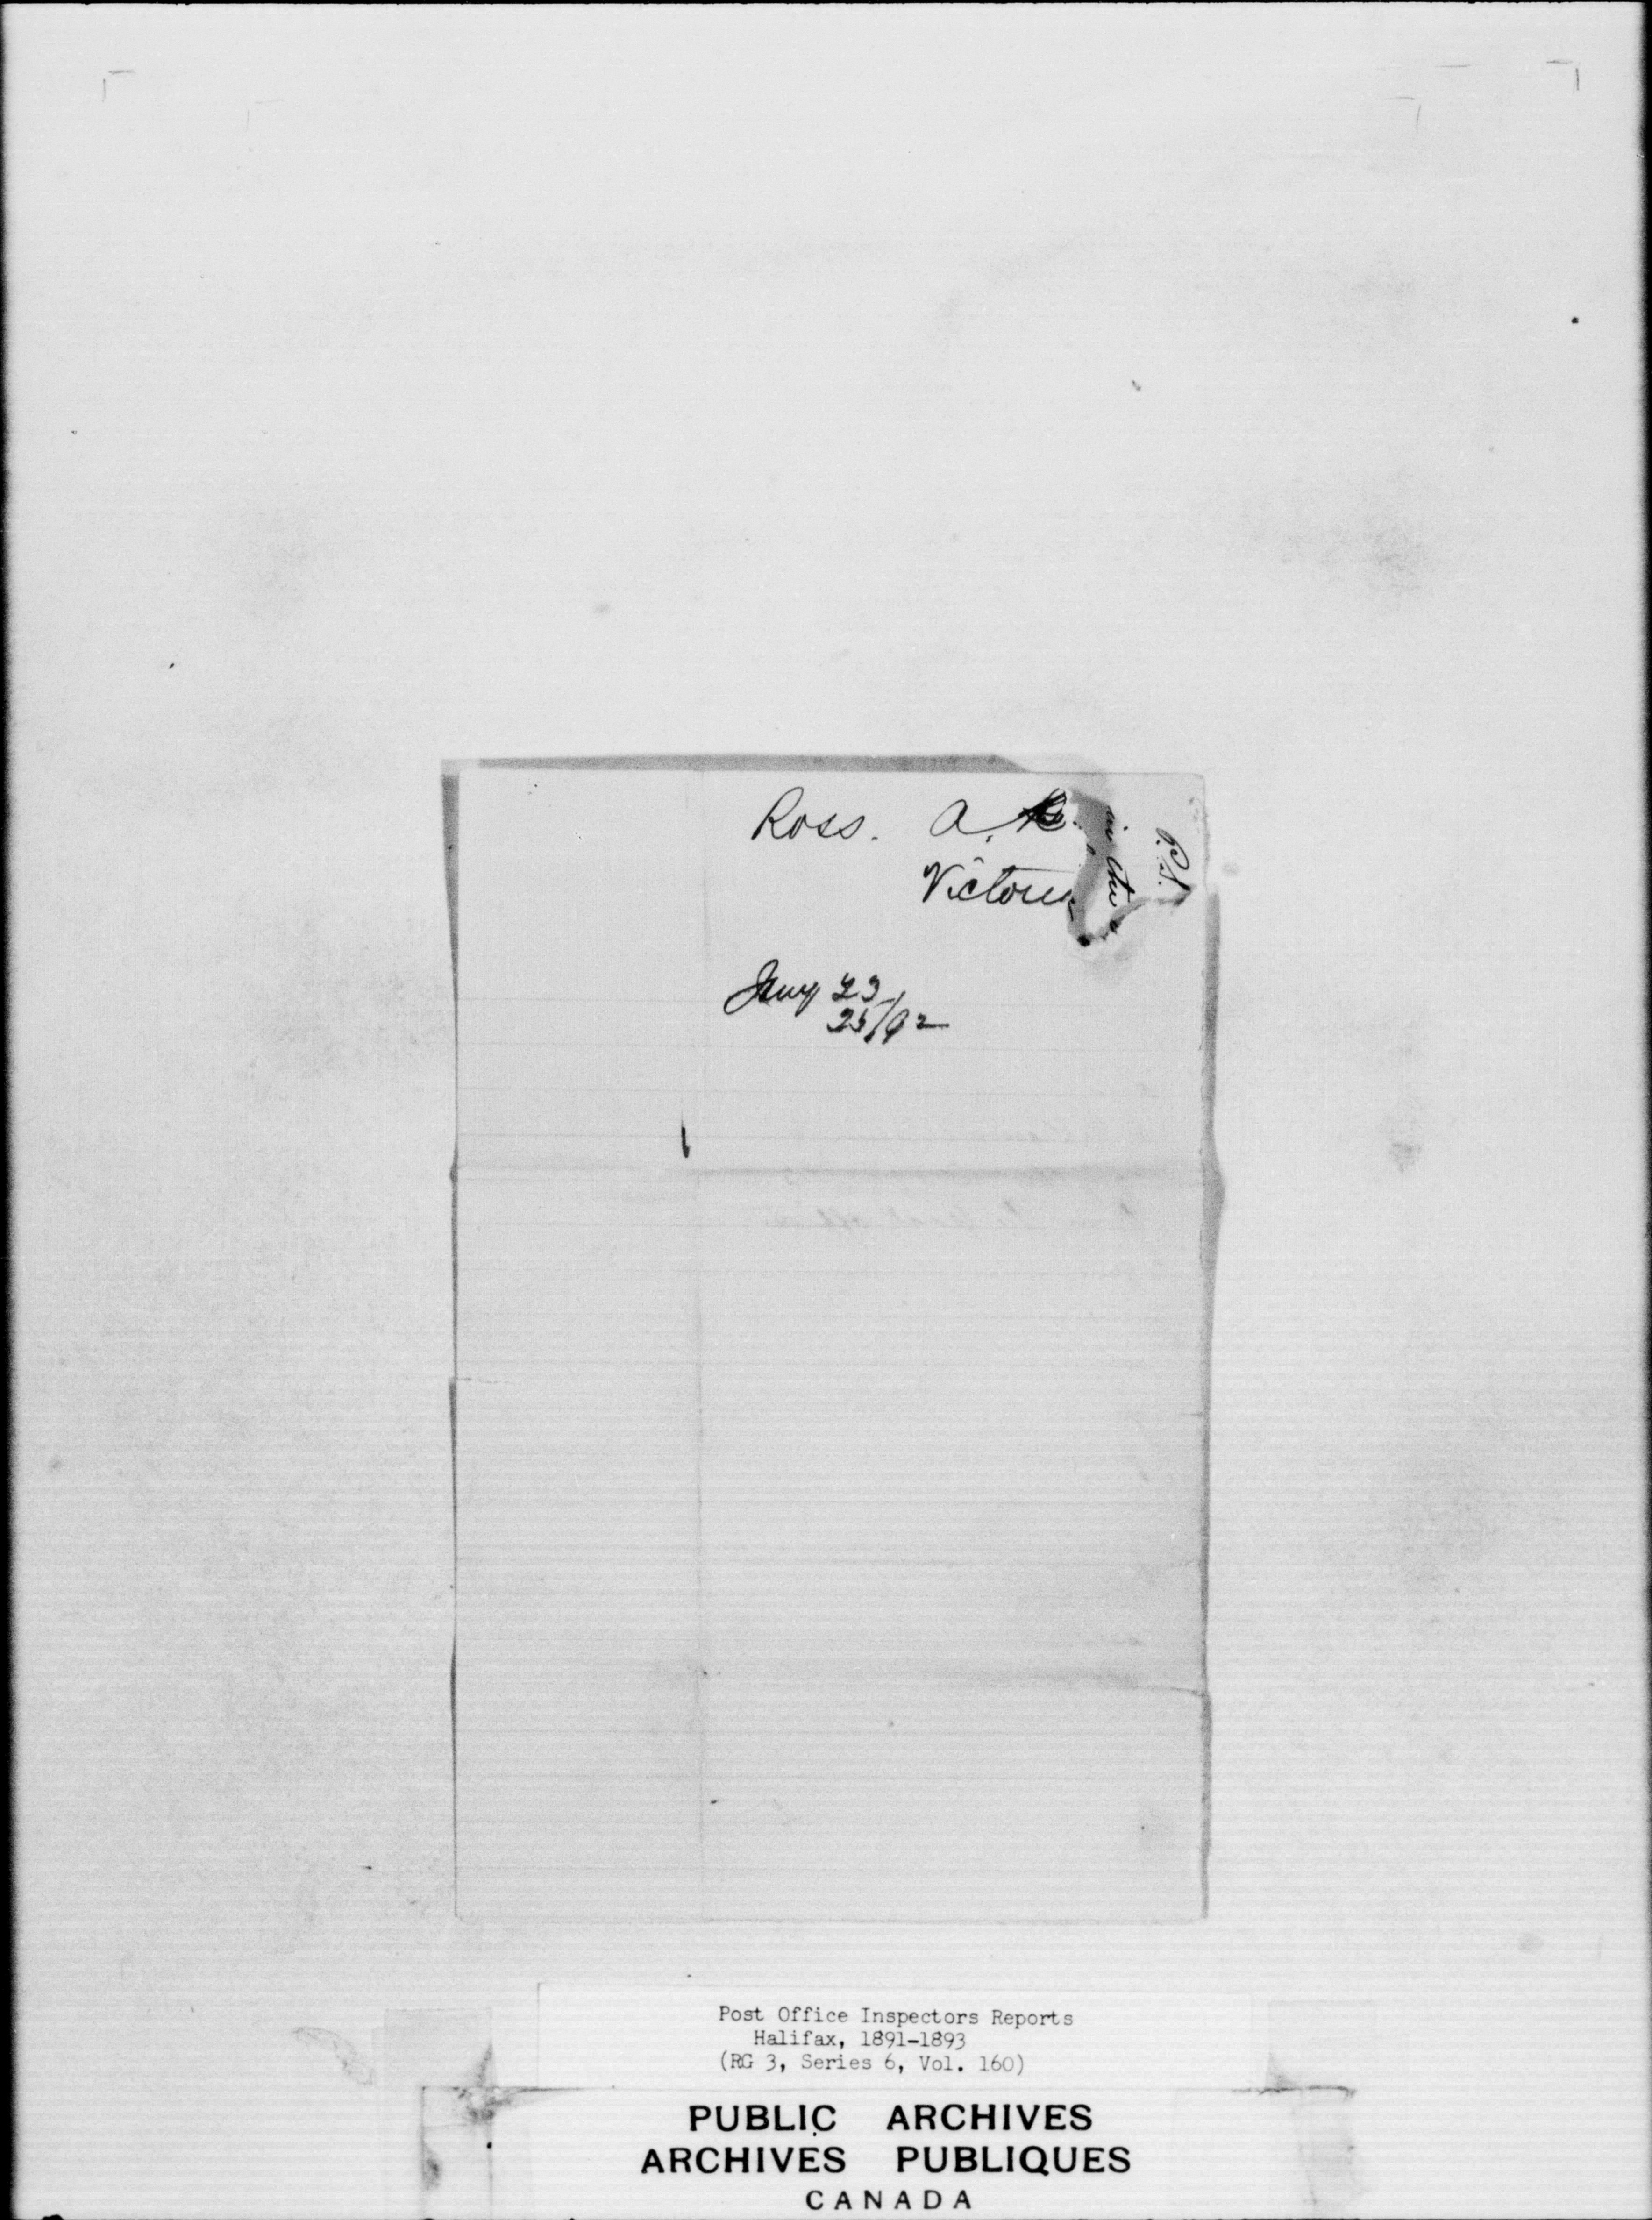 Ross. A.
Victoria
Jany 23
25/92
Post Office Inspectors Reports
Halifax, 1891-1893
(RG 3, Series 6, Vol. 160)
PUBLIC ARCHIVES
ARCHIVES PUBLIQUES
CANADA